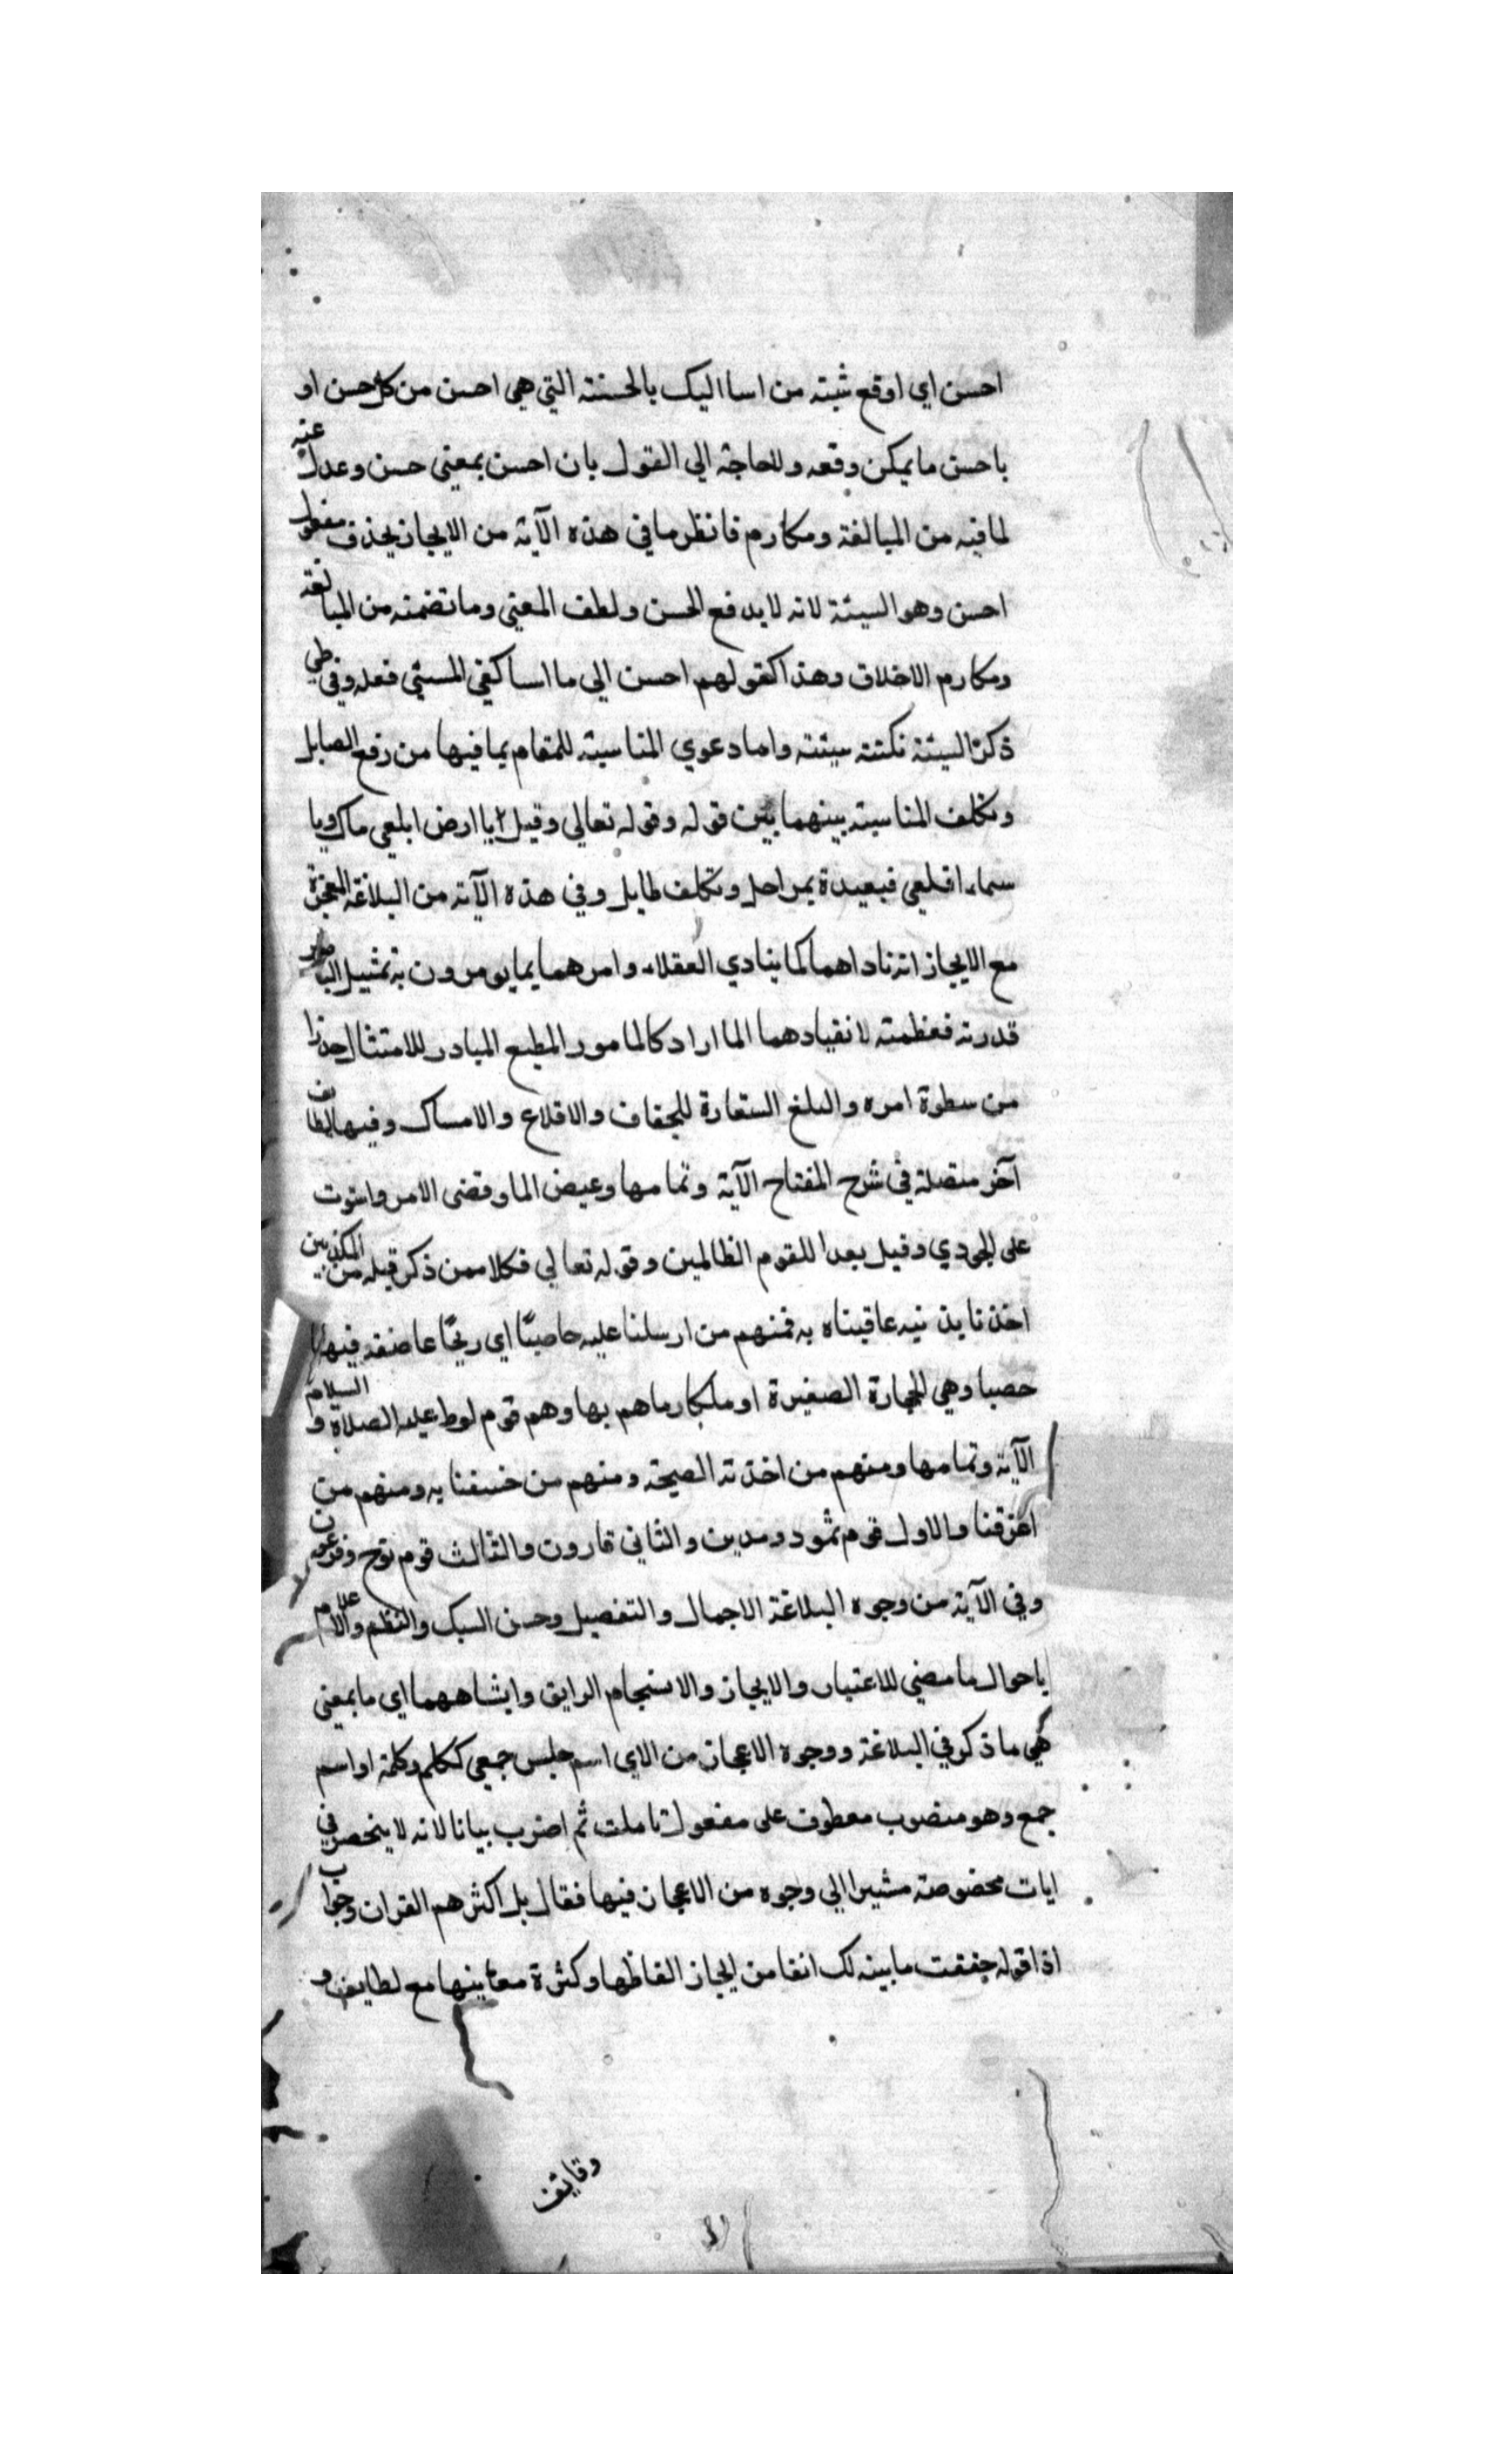 احسن اي اوقع شيته من اسا اليك بالحسنته التي هي احسن من كل حسن او
باحسن ما يمكن وقعه وللحاجة الي القول بان احسن بمعني حسن وعدل عنه
لما فيه من المبالغة ومكارم فانظر ما في هذه الآية من الايجاز بحذف مفعول
احسن وهو السيئة لانه لا يدفع الحسن ولطف المعني وما تضمنه من المبالغة
ومكارم الاخلاق وهذا كقولهم احسن الي ما اسا كفي المسئي فعله وفي طي
ذكر السيئة نكتته سيئته واما دعوي المناسبة للمقام بما فيها من رفع الصايل
وتكلف المناسبة بينهما بين قوله وقوله تعالي وقيل يا ارض ابلعي ماك ويا
سماء اقلعي فبعيدة بمراحل وتكلف طايل وفي هذه الآية من البلاغة المعجزة
مع الايجاز انه ناداهما كما ينادي العقلاء وامرهما بما يومرون به تمثيل
قدرته فعظمته لانقيادهما الما اراد كالمامور المطيع المبادر للامتثال حذرا
من سطوة امره والبلغ الستعارة للجفاف والاقلاع والامساك وفيها لطايف
آخر متصلة في شرح المفتاح الآية وتمامها وعيض الما وقضي الامر واستوت
علي الجودي وقيل بعدا للقوم الظالمين وقوله تعالي فكلا ممن ذكر قبله من المكذبين
اخذنا بذنبه عاقبناه به فمنهم من ارسلنا عليه حاصبًا اي ريحًا عاصفة فيها
حصبا وهي الحجارة الصغيرة او ملكا رماهم بها وهم قوم لوط عليه الصلاة و السلام
الآية وتمامها ومنهم من اخذته الصيحة ومنهم من خسفنا به ومنهم من
اغرقنا والاول قوم ثمود ومدين والثاني قارون والثالث قوم نوح وفرعون
وفي الآية من وجوه البلاغة الاجمال والتفصيل وحسن السبك والنظم والاعلام
باحوال ما مضي للاعتبار والايجاز والانسجام الرايق وايشاههما اي ما بمعني
هي ما ذكر في البلاغة ووجوه الاعجاز من الاي اسم جلس جمعي ككلم وكلمة او اسم
جمع وهو منصوب معطوف علي مفعول تاملت ثم اضرب بيانا لانه لا ينحصر في
ايات مخصوصة مشيرا الي وجوه من الاعجاز فيها فقال بل اكثرهم القران وجواب
اذا قوله حققت ما بينه لك انفا من ايجاز الفاظها وكثرة معانيها مع لطايف و
وقايف